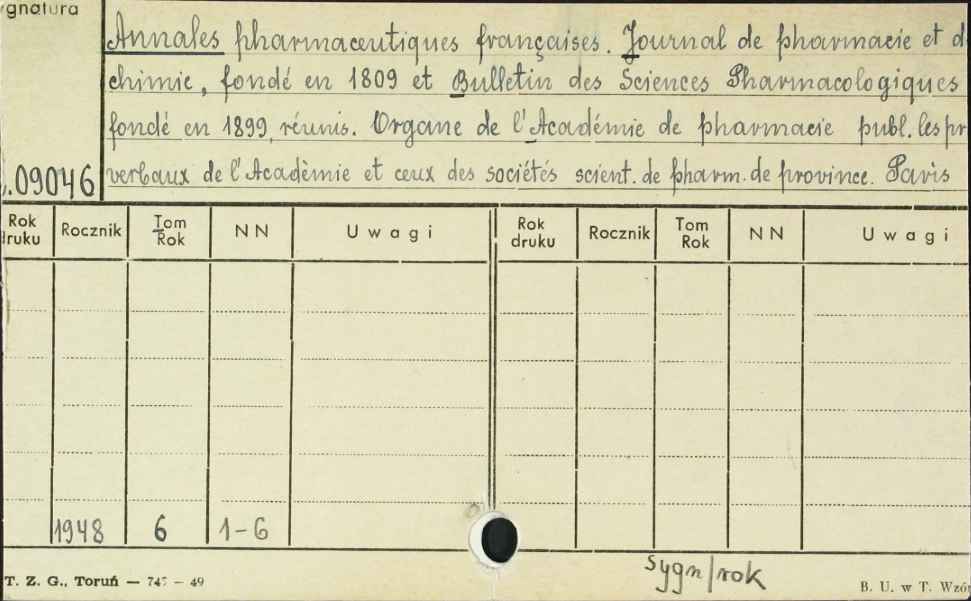 ygnatura
Annales pharmaceutiques françaises. Journal de pharmacie et d
chimie, fondé en 1809 et Bulletin des Sciences Pharmacologiques
fondé en 1899, réunis. Organe de l'Académie de pharmacie publ. les pr
.09046 verbaux de l'Acadèmie et ceux des sociétés scient. de pharm. de province. Paris
Rok druku Rocznik Tom Rok NN Uwagi Rok druku Rocznik Tom Rok NN Uwagi
1948 6 1-6
sygn/rok
T. Z. G., Toruń — 747 — 49 B. U. w T. Wzór